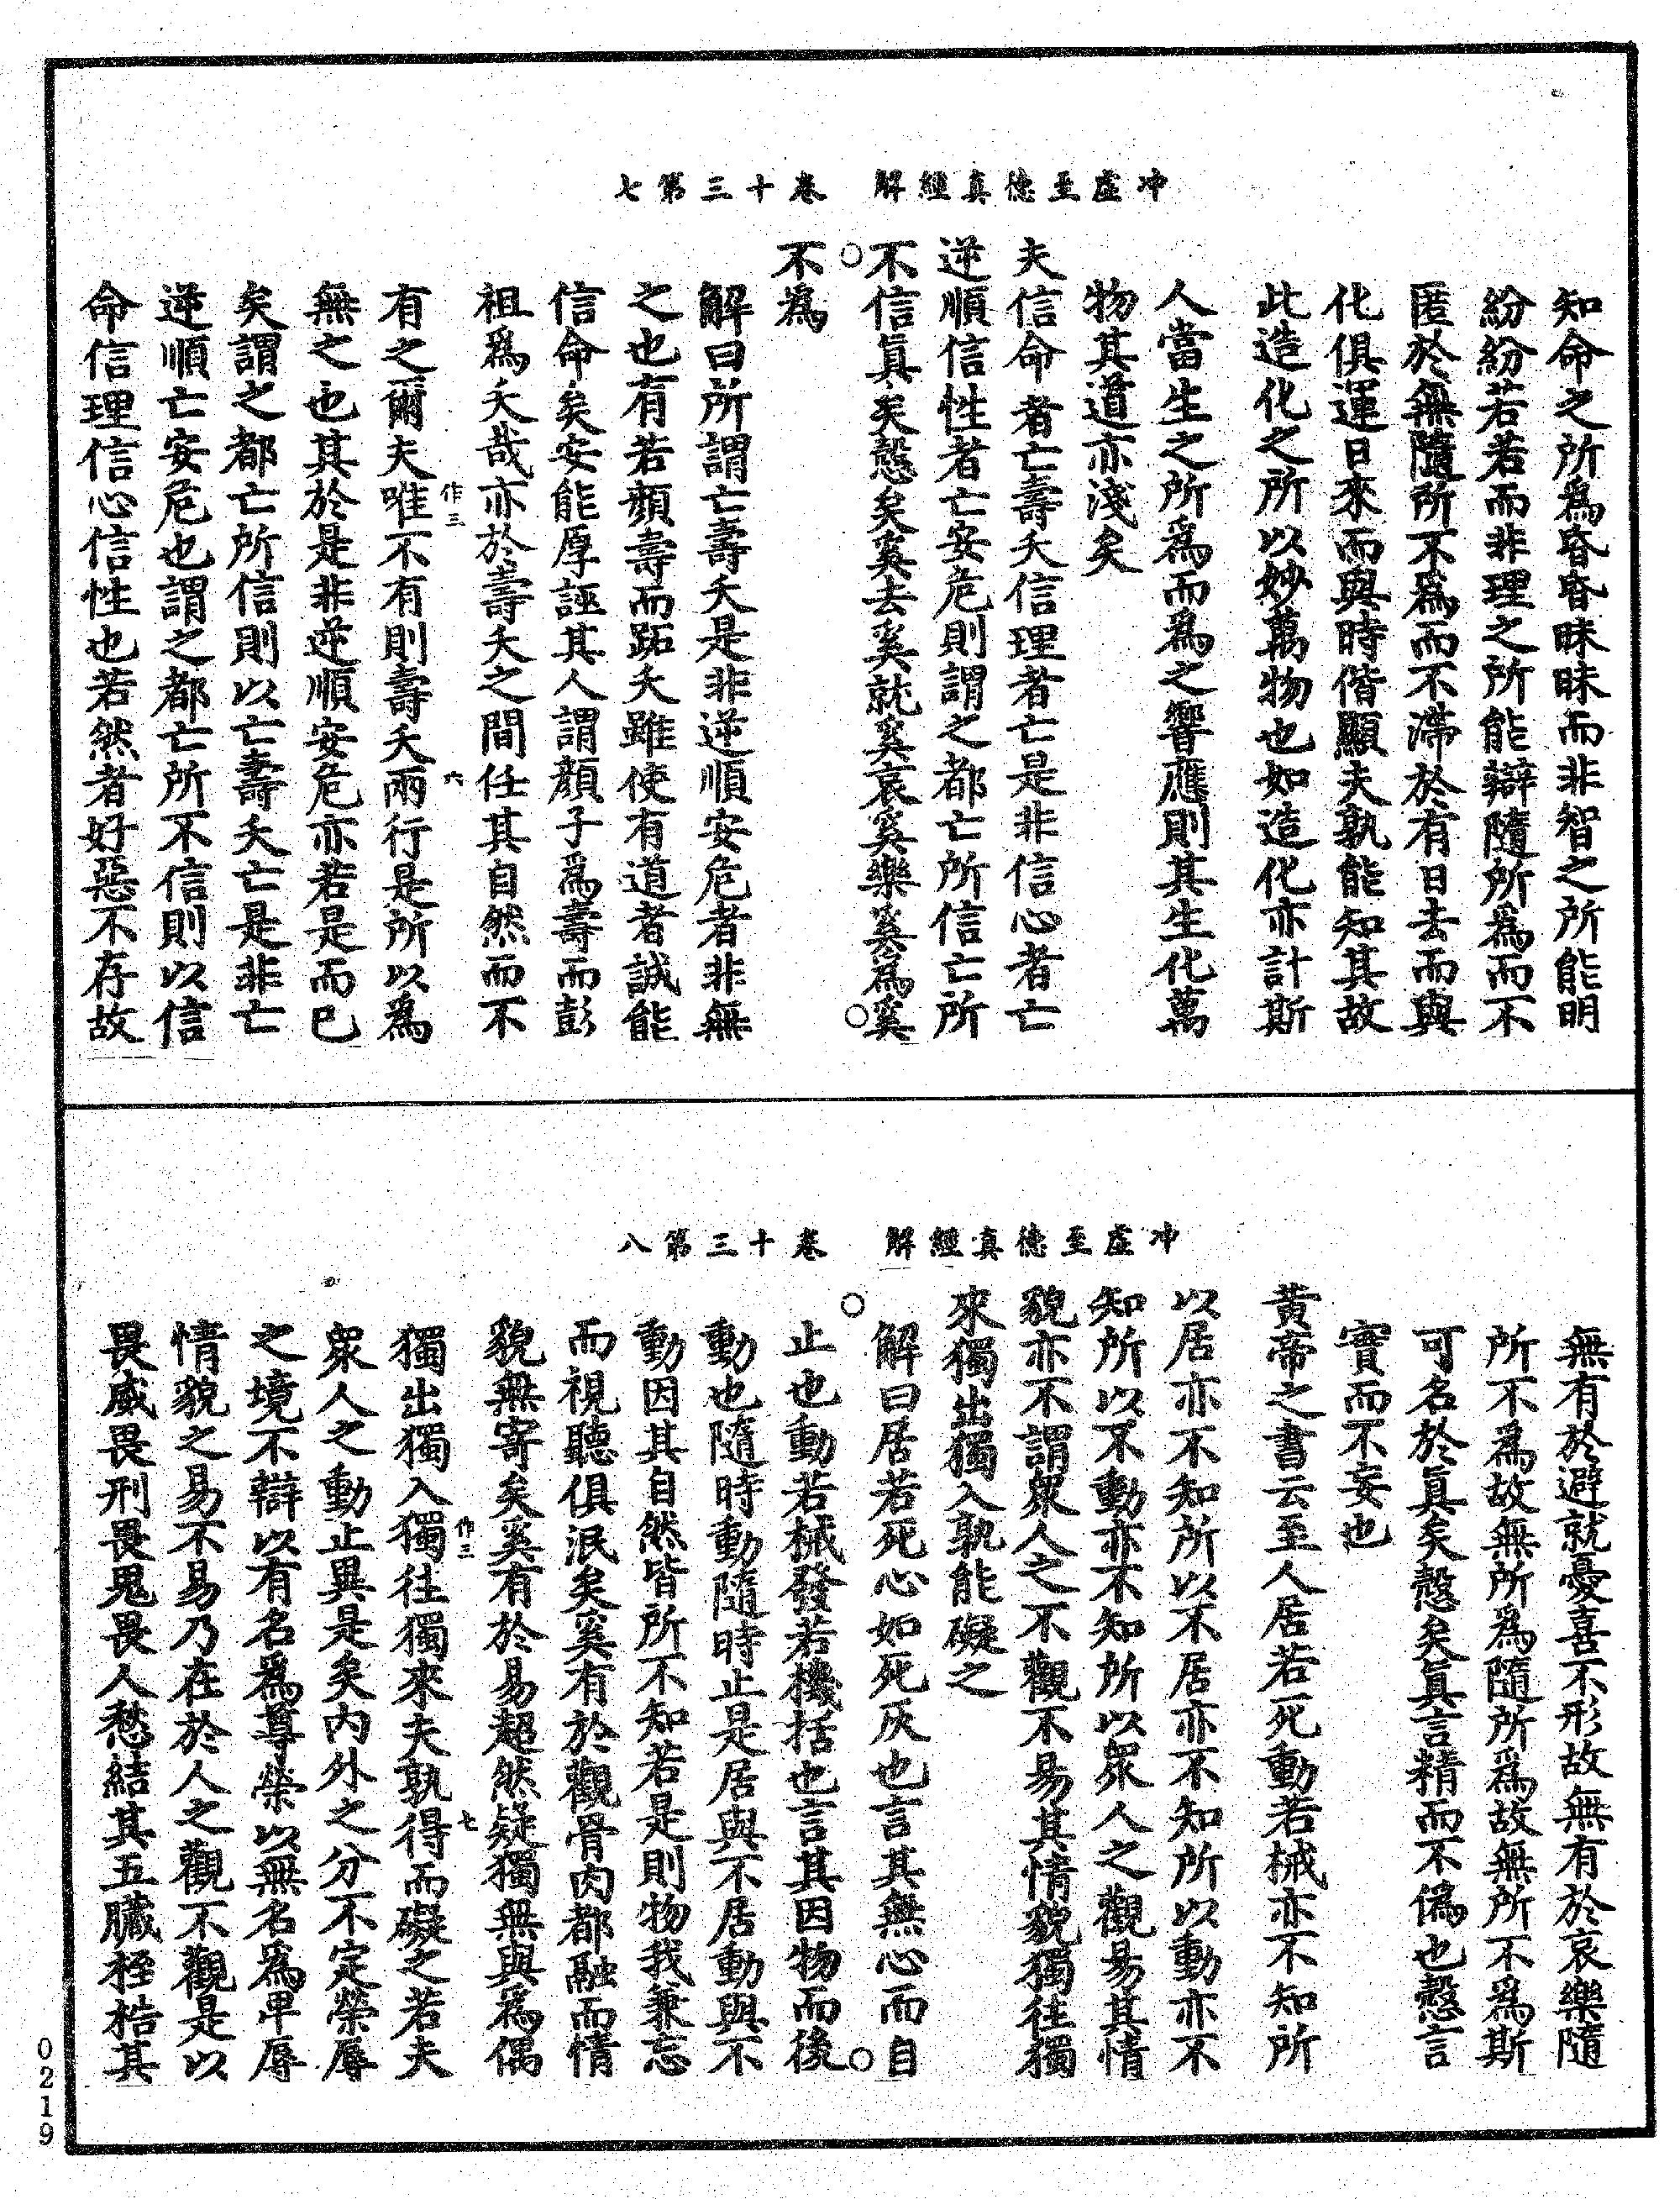 冲虛至德真經解　卷十三第七
知命之所爲昏昏昧昧而非智之所能明
紛紛若若而非理之所能辯隨所爲而不
匿於無隨所不爲而不滯於有日去而與
化俱運日來而與時偕顯夫孰能知其故
此造化之所以妙萬物也如造化亦計斯
人當生之所爲而爲之響應則其生化萬
物其道亦淺矣
夫信命者亡壽夭信理者亡是非信心者亡
逆順信性者亡安危則謂之都亡所信亡所
不信眞矣愨矣奚去奚就奚哀奚樂奚爲奚
不爲
解曰所謂亡壽夭是非逆順安危者非無
之也有若顏壽而跖夭雖使有道者誠能
信命矣安能厚誣其人謂顏子爲壽而彭
祖爲夭哉亦於壽夭之間任其自然而不
作三　六
有之爾夫唯不有則壽夭兩行是所以爲
無之也其於是非逆順安危亦若是而已
矣謂之都亡所信則以亡壽夭亡是非亡
逆順亡安危也謂之都亡所不信則以信
命信理信心信性也若然者好惡不存故
冲虛至德真經解　卷十三第八
無有於避就憂喜不形故無有於哀樂隨
所不爲故無所爲隨所爲故無所不爲斯
可名於眞矣愨矣眞言精而不僞也愨言
實而不妄也
黃帝之書云至人居若死動若械亦不知所
以居亦不知所以不居亦不知所以動亦不
知所以不動亦不知所以衆人之觀易其情
貌亦不謂衆人之不觀不易其情貌獨往獨
來獨出獨入孰能礙之
解曰居若死心如死灰也言其無心而自
止也動若械發若機括也言其因物而後
動也隨時動隨時止是居與不居動與不
動因其自然皆所不知若是則物我兼忘
而視聽俱泯矣奚有於觀骨肉都融而情
貌無寄矣奚有於易超然疑獨無與爲偶
作三　七
獨出獨入獨往獨來夫孰得而礙之若夫
衆人之動止異是矣內外之分不定榮辱
之境不辯以有名爲尊榮以無名爲卑辱
情貌之易不易乃在於人之觀不觀是以
畏威畏刑畏鬼畏人愁結其五臟桎梏其
0219